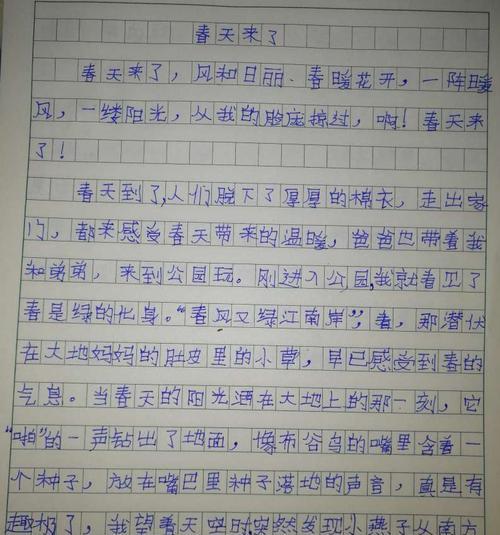 春天来了
春天来了，风和日丽、春暖花开，一阵暖
风，一缕阳光，从我的脸庞掠过，啊！春天来
了！
春天到了，人们脱下了厚厚的棉衣，走出家
门，都来感受春天带来的温暖，爸爸也带着我
和弟弟，来到公园玩。刚进入公园，我就看见了
春是绿的化身。“春风又绿江南岸”，看，那潜伏
在大地妈妈的肚皮里的小草，早已感受到春的
气息。当春天的阳光洒在大地上的那一刻，它
“啪”的一声钻出了地面，像布谷鸟的嘴里含着一
个种子，放在嘴巴里种子落地的声音，真是有
趣极了，我望着天空时，突然发现小燕子从南方